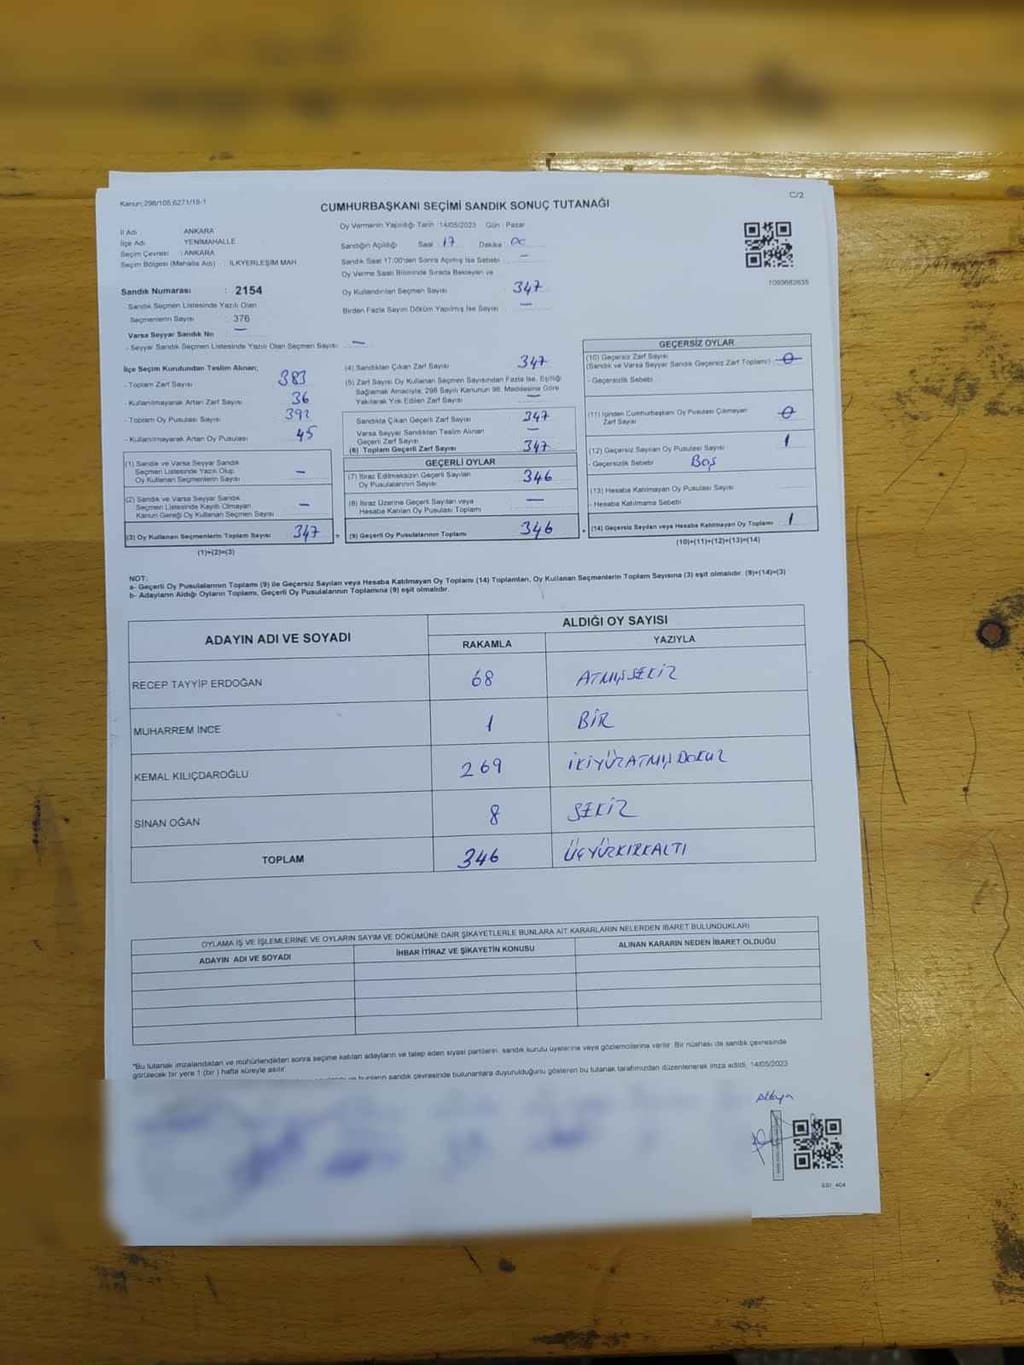 Kanun: 298/105,6271/19-1
C/2
CUMHURBAŞKANI SEÇİMİ SANDIK SONUÇ TUTANAĞI
İl Adı : ANKARA
İlçe Adı : YENİMAHALLE
Seçim Çevresi : ANKARA
Seçim Bölgesi (Mahalle Adı) : İLKYERLEŞİM MAH
Sandık Numarası : 2154
Sandık Seçmen Listesinde Yazılı Olan
Seçmenlerin Sayısı : 376
Varsa Seyyar Sandık No —
- Seyyar Sandık Seçmen Listesinde Yazılı Olan Seçmen Sayısı : —
Oy Vermenin Yapıldığı Tarih : 14/05/2023 Gün : Pazar
Sandığın Açıldığı Saat 17 Dakika 00
Sandık Saat 17:00'den Sonra Açılmış İse Sebebi —
Oy Verme Saati Bitiminde Sırada Bekleyen ve
Oy Kullandırılan Seçmen Sayısı 347
Birden Fazla Sayım Döküm Yapılmış İse Sayısı —
1093682635
İlçe Seçim Kurulundan Teslim Alınan;
- Toplam Zarf Sayısı 383
- Kullanılmayarak Artan Zarf Sayısı 36
- Toplam Oy Pusulası Sayısı 392
- Kullanılmayarak Artan Oy Pusulası 45
(1) Sandık ve Varsa Seyyar Sandık
Seçmen Listesinde Yazılı Olup
Oy Kullanan Seçmenlerin Sayısı —
(2) Sandık ve Varsa Seyyar Sandık
Seçmen Listesinde Kayıtlı Olmayan
Kanun Gereği Oy Kullanan Seçmen Sayısı —
(3) Oy Kullanan Seçmenlerin Toplam Sayısı 347
(1)+(2)=(3)
(4) Sandıktan Çıkan Zarf Sayısı 347
(5) Zarf Sayısı Oy Kullanan Seçmen Sayısından Fazla İse, Eşitliği
Sağlamak Amacıyla, 298 Sayılı Kanunun 98. Maddesine Göre
Yakılarak Yok Edilen Zarf Sayısı —
Sandıkta Çıkan Geçerli Zarf Sayısı 347
Varsa Seyyar Sandıktan Teslim Alınan
Geçerli Zarf Sayısı —
(6) Toplam Geçerli Zarf Sayısı 347
GEÇERLİ OYLAR
(7) İtiraz Edilmeksizin Geçerli Sayılan
Oy Pusulalarının Sayısı 346
(8) İtiraz Üzerine Geçerli Sayılan veya
Hesaba Katılan Oy Pusulası Toplamı —
(9) Geçerli Oy Pusulalarının Toplamı 346
GEÇERSİZ OYLAR
(10) Geçersiz Zarf Sayısı
(Sandık ve Varsa Seyyar Sandık Geçersiz Zarf Toplamı) 0
- Geçersizlik Sebebi
(11) İçinden Cumhurbaşkanı Oy Pusulası Çıkmayan
Zarf Sayısı 0
(12) Geçersiz Sayılan Oy Pusulası Sayısı 1
- Geçersizlik Sebebi Boş
(13) Hesaba Katılmayan Oy Pusulası Sayısı
- Hesaba Katılmama Sebebi
(14) Geçersiz Sayılan veya Hesaba Katılmayan Oy Toplamı 1
(10)+(11)+(12)+(13)=(14)
NOT:
a- Geçerli Oy Pusulalarının Toplamı (9) ile Geçersiz Sayılan veya Hesaba Katılmayan Oy Toplamı (14) Toplamları, Oy Kullanan Seçmenlerin Toplam Sayısına (3) eşit olmalıdır. (9)+(14)=(3)
b- Adayların Aldığı Oyların Toplamı, Geçerli Oy Pusulalarının Toplamına (9) eşit olmalıdır.
ADAYIN ADI VE SOYADI
ALDIĞI OY SAYISI
RAKAMLA YAZIYLA
RECEP TAYYİP ERDOĞAN 68 ATMIŞSEKİZ
MUHARREM İNCE 1 BİR
KEMAL KILIÇDAROĞLU 269 İKİYÜZATMIŞDOKUZ
SİNAN OĞAN 8 SEKİZ
TOPLAM 346 ÜÇYÜZKIRKALTI
OYLAMA İŞ VE İŞLEMLERİNE VE OYLARIN SAYIM VE DÖKÜMÜNE DAİR ŞİKAYETLERLE BUNLARA AİT KARARLARIN NELERDEN İBARET BULUNDUKLARI
ADAYIN ADI VE SOYADI İHBAR İTİRAZ VE ŞİKAYETİN KONUSU ALINAN KARARIN NEDEN İBARET OLDUĞU
"Bu tutanak imzalandıktan ve mühürlendikten sonra seçime katılan adayların ve talep eden siyasi partilerin, sandık kurulu üyelerine veya gözlemcilerine verilir. Bir nüshası da sandık çevresinde
görülecek bir yere 1 (bir) hafta süreyle asılır.
bunların sandık çevresinde bulunanlara duyurulduğunu gösteren bu tutanak tarafımızdan düzenlenerek imza edildi. 14/05/2023